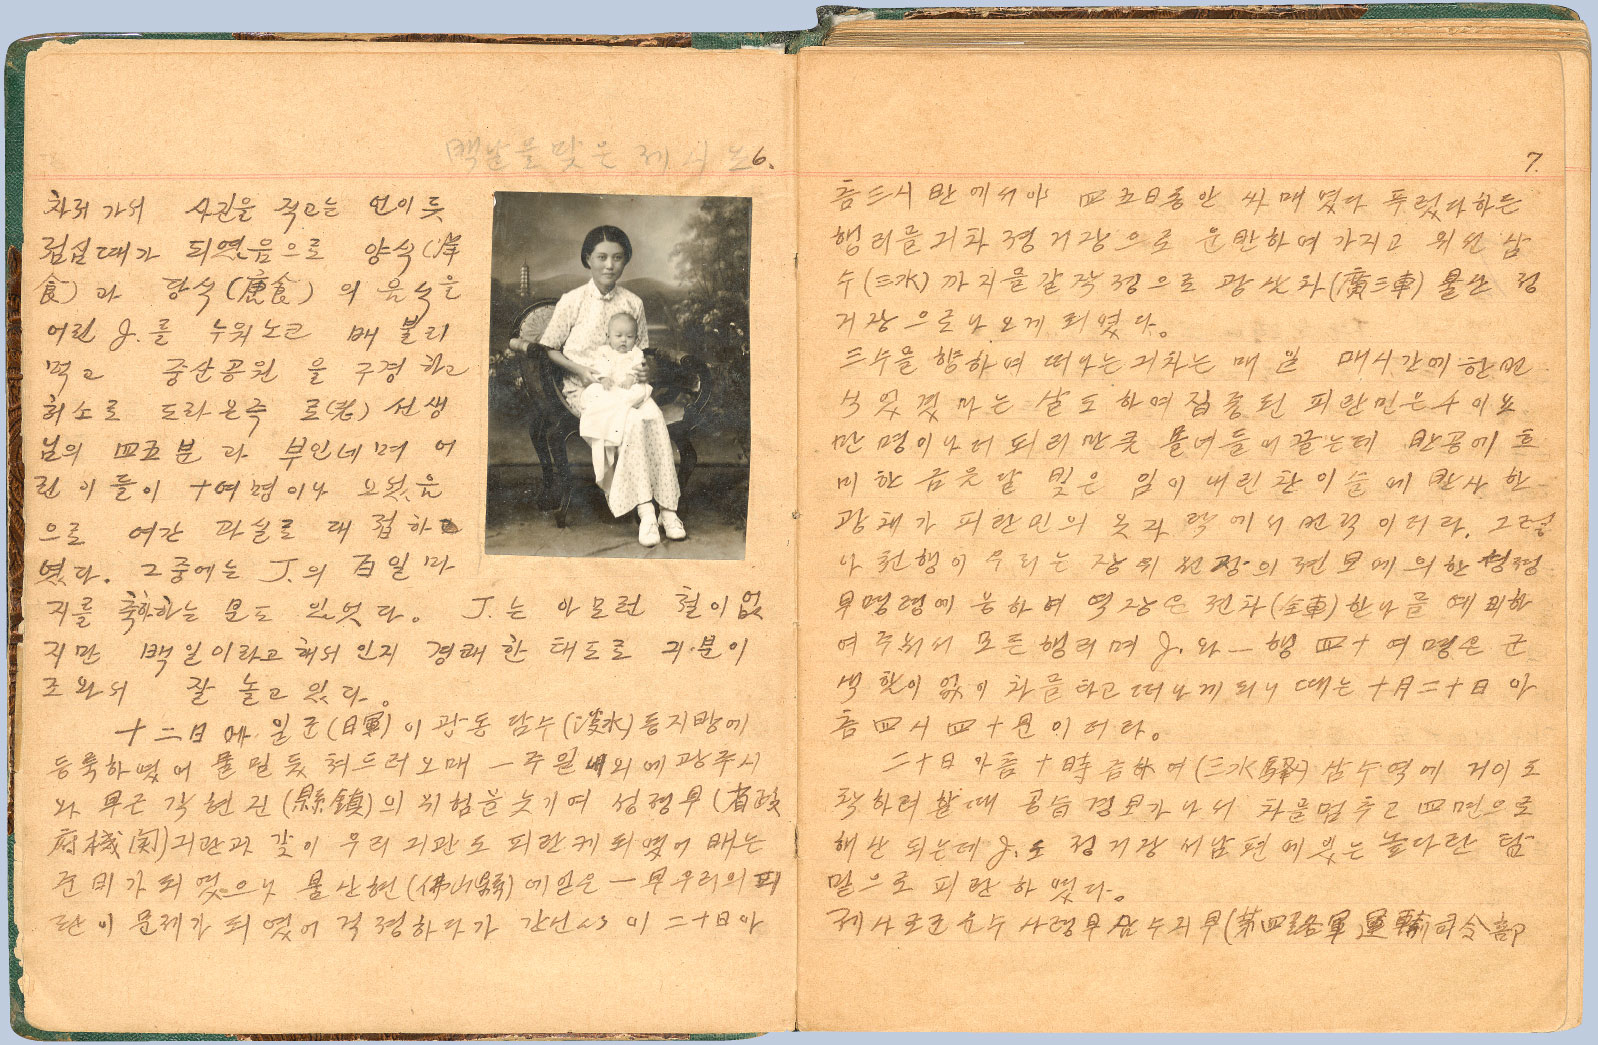 백날을 맞은 제시는
6.
차려가서 사진을 적고는 언이듯
점심때가 되였음으로 양식(洋
食)과 당식(唐食)의 음식을
어린 J.를 누워노코 배불리
먹고 중산공원을 구경하고
허소로 도라온즉 로(老)선생
님의 四五분과 부인네며 어
린이들이 十여명이나 오섰음
으로 여간 과실로 대접하
였다. 그중에는 J.의 百일마
지를 축하하는 분도 있엇다. J.는 아모런 철이 없
지만 백일이라고 해서 인지 경쾌한 태도로 귀분이
조와서 잘 놀고 있다.
十二日에 일군(日軍)이 광동 담수(淡水)등지방에
등륙하였어 물밀듯 처드러오매 一주일내외에 광주시
와 부근 각현진(縣鎭)의 위험을 늣기여 성정부(省政
府機関)긔관과 같이 우리 긔관도 피란케되였어 배는
준비가 되엿으나 불산현(佛山縣)에 일은 一부우리의 피
란이 문제가 되였어 걱정하다가 간신 이 二十日아
7.
츰 드시반에서야 四五日동안 싸매였다 푸렀다하든
행리를 긔차정거장으로 운반하여가지고 위선 삼
수(三水)까지를 갈 작정으로 광삼차(廣三車) 불산 정
거장으로 나오게 되였다.
三수를 향하여 떠나는 긔차는 매일 매시간에 한번
식 있겠마는 살도하여 집중된 피란민은 十이오
만명이나 되리만큼 몰여들어 끌는데 반공에 흐
미한 금은달 빛은 임이 내린 찬이슬에 반사한
광채가 피란민의 옷자락에서 번적이더라. 그러
나 천행이 우리는 장위선장의 전보에 의한 성정
부명령에 응하여 역장은 전차(全車)한나를 예비하
여 주워서 모든행리며 J.와 一행 四十여명은 군
색힛이 없이 차를타고 떠나게되니 때는 十月二十日아
츰 四시 四十분이러라.
二十日아츰 十時 (三水驛) 삼수역에 거이 도
착하려할때 공습경보가나서 차를멈추고 四면으로
해산되는데 J.도 정거장 서남편에있는 놉다란 담
밑으로 피란하였다.
제사로군운수사령부삼수지부(第四路軍運輸司令部